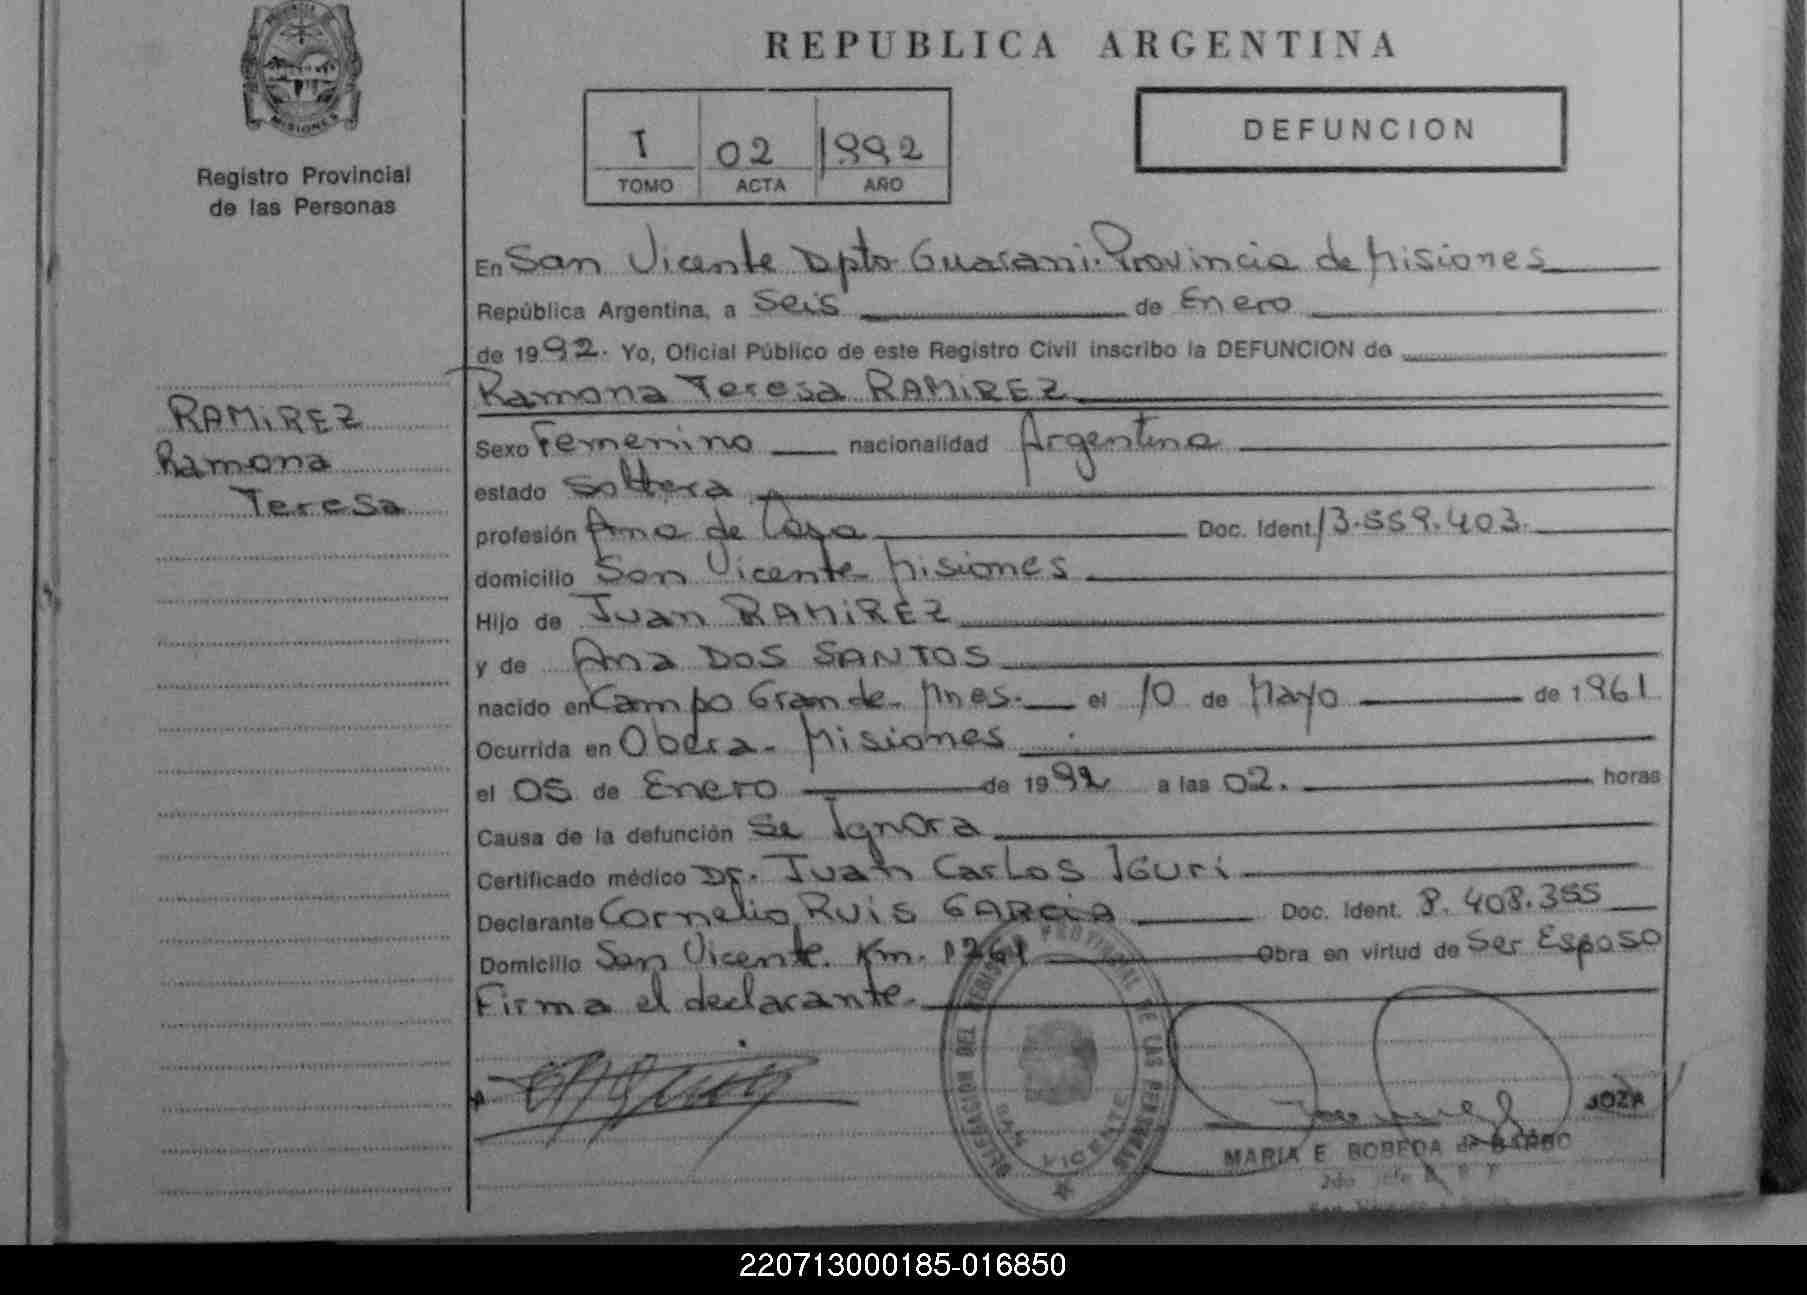 REPUBLICA ARGENTINA
MISIONES
Registro Provincial
de las Personas
T 02 1992
TOMO ACTA AÑO
DEFUNCION
En San Vicente Dpto Guarani. Provincia de Misiones
República Argentina, a Seis de Enero
de 1992. Yo, Oficial Público de este Registro Civil inscribo la DEFUNCION de
Ramona Teresa RAMIREZ
RAMIREZ
Ramona
Teresa
Sexo Femenino nacionalidad Argentina
estado Soltera
profesión Ama de Casa Doc. Ident. 13.559.403.
domicilio San Vicente Misiones
Hijo de Juan RAMIREZ
y de Ana DOS SANTOS
nacido en Campo Grande. Mnes. el 10 de Mayo de 1961
Ocurrida en Obera. Misiones
el 05 de Enero de 1992 a las 02. horas
Causa de la defunción Se Ignora
Certificado médico Dr. Juan Carlos IGuri
Declarante Cornelio Ruis GARCIA Doc. Ident. 8.408.355
Domicilio San Vicente. Km. 1261 Obra en virtud de Ser Esposo
Firma el declarante.
DELEGACION DEL REGISTRO PROVINCIAL DE LAS PERSONAS
SAN VICENTE
MARIA E. BOBEDA de
220713000185-016850